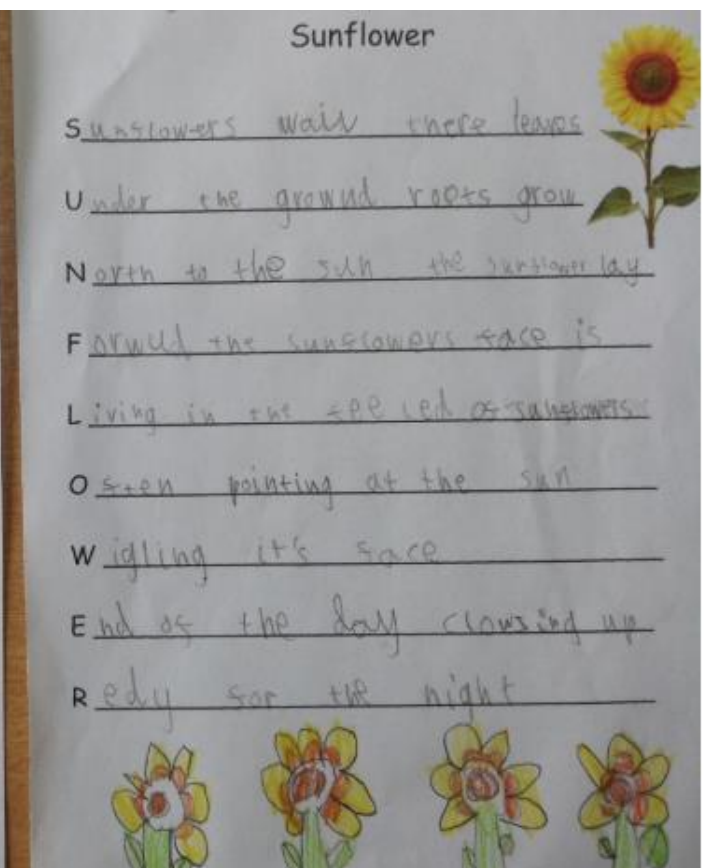 Sunflower
Sunflowers there leaves
Under the growud roots grow
North to the sun the sunflower lay
Forwud the sunflowers face is
Living in the of sunflowers
Often pointing at the sun
Wigling it's face
End of the day clowsing up
Redy for the night